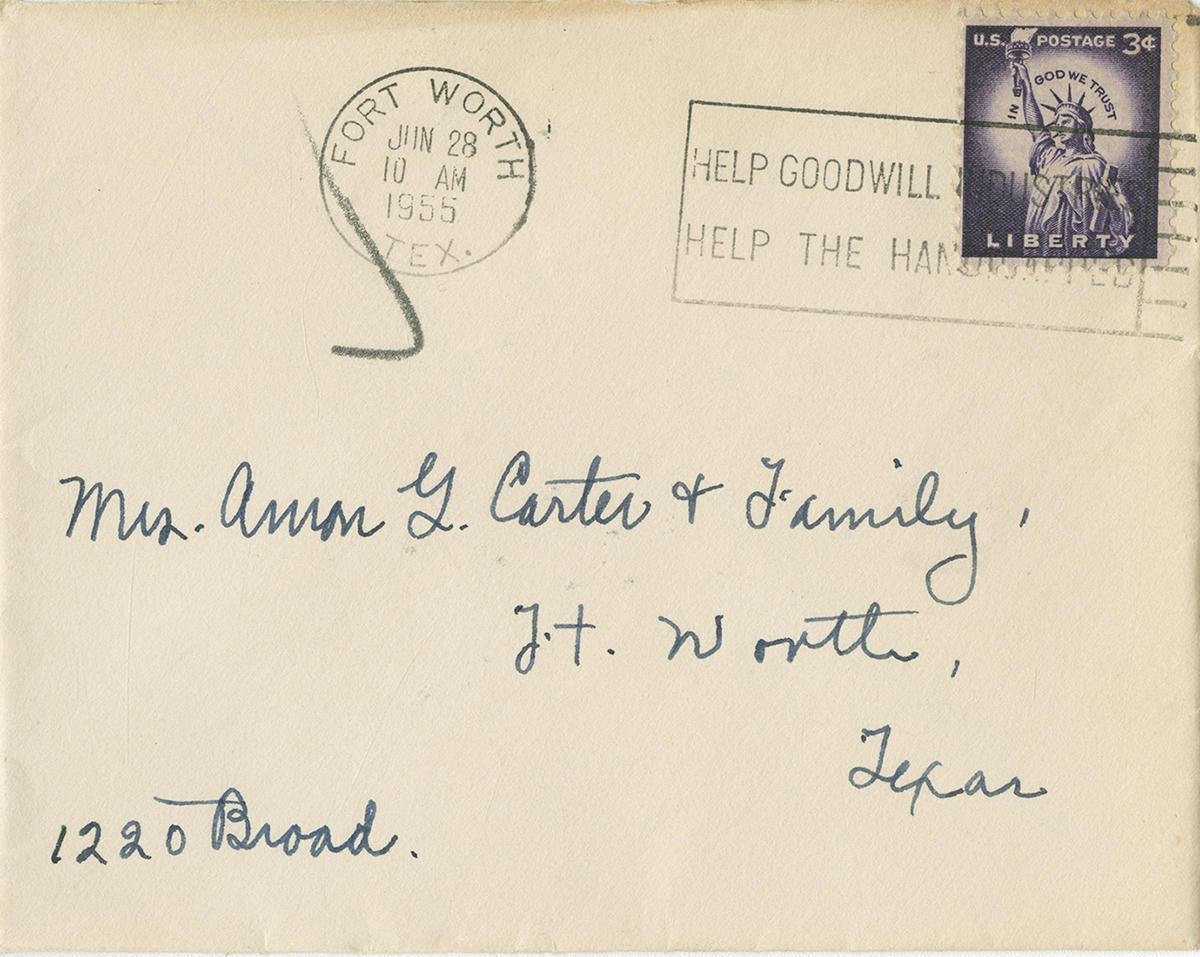 FORT WORTH
JUN 28
10 AM
1955
TEX.
HELP GOODWILL INDUSTRIES
HELP THE HANDICAPPED
U.S. POSTAGE 3¢
IN GOD WE TRUST
LIBERTY
Mrs. Amon G. Carter & Family,
Ft. Worth,
Texas
1220 Broad.